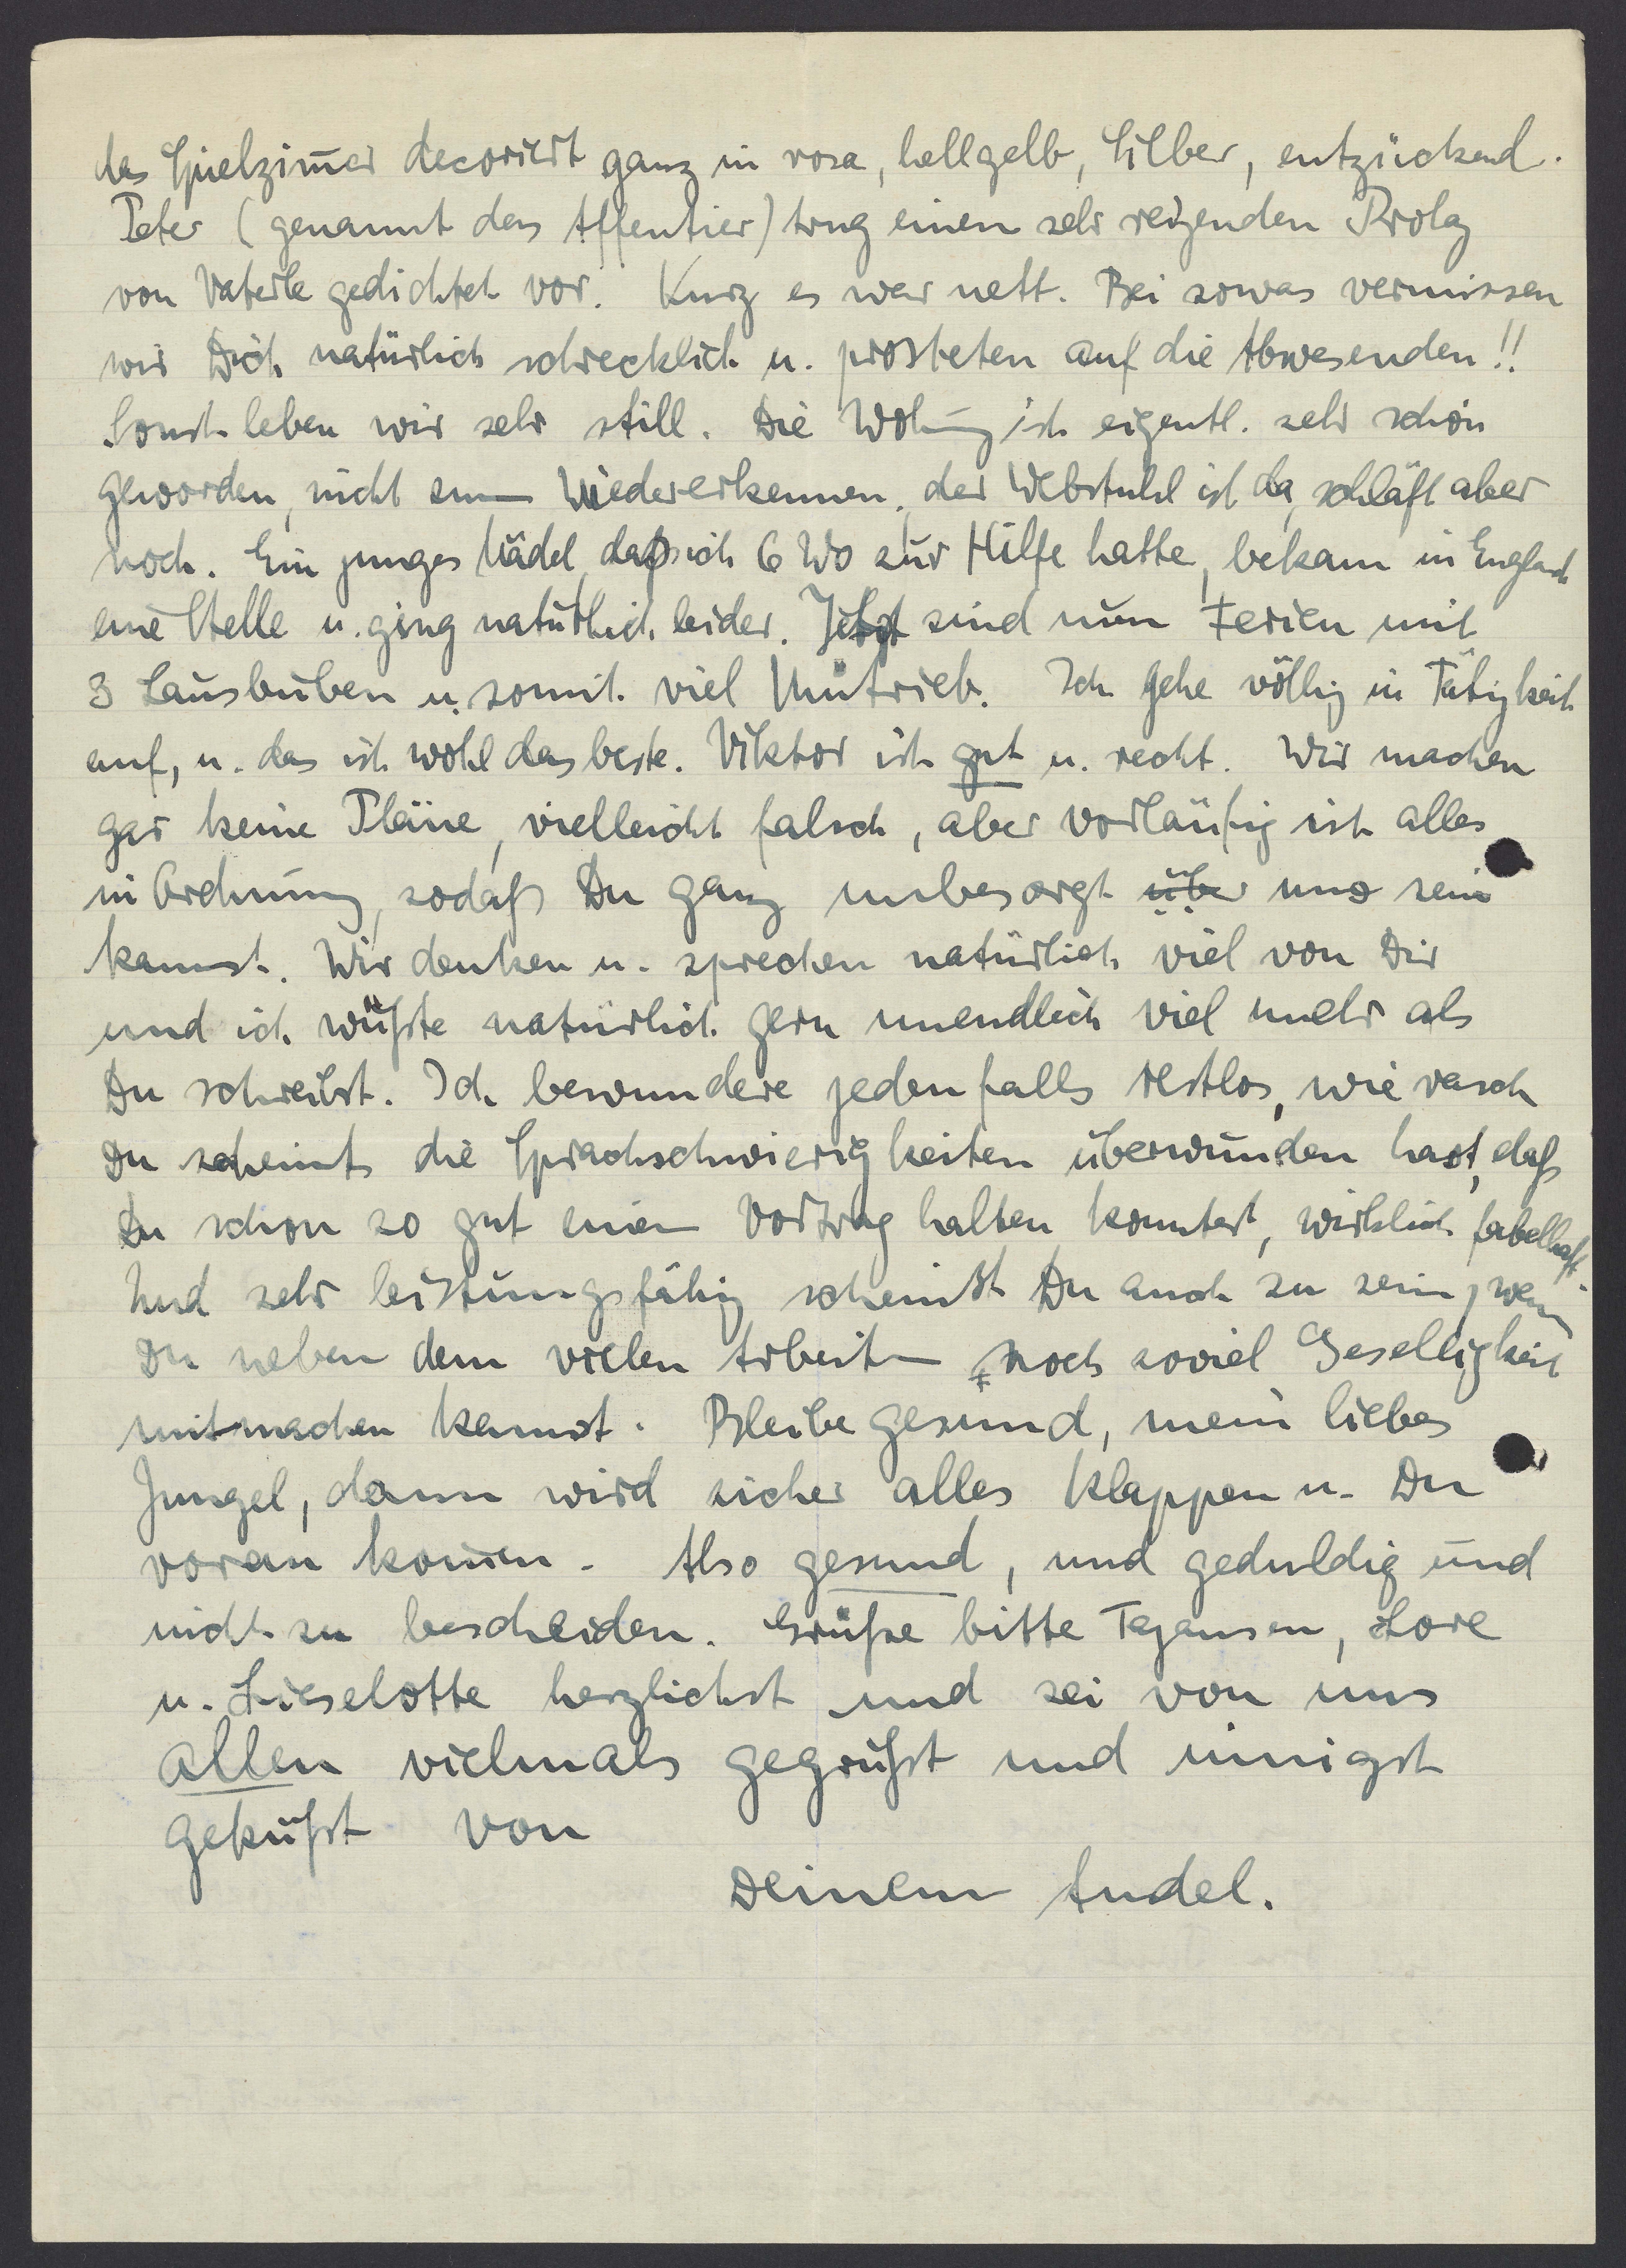 das Spielzim̅er decoriert ganz in rosa, hellgelb, Silber, entzückend.
Peter (genannt das Affentier) trug einen sehr reizenden Prolog
von Vaterle gedichtet vor. Kurz es war nett. Bei sowas vermissen
wir Dich natürlich schrecklich u. prosteten auf die Abwesenden!!
Sonst leben wir sehr still. Die Wohnung ist eigentl. sehr schön
geworden, nicht zum Wiedererkennen, der Webstuhl ist da, schläft aber
noch. Ein junges Mädel, daß ich 6 Wo zur Hilfe hatte, bekam in England
eine Stelle u. ging natürlich leider. Jetzt sind nun Ferien mit
3 Lausbuben u. somit viel Umtrieb. Ich gehe völlig in Tätigkeit
auf, u. das ist wohl das beste. Viktor ist gut u. recht. Wir machen
gar keine Pläne, vielleicht falsch, aber vorläufig ist alles
in Ordnung, sodaß Du ganz unbesorgt über uns sein
kannst. Wir denken u. sprechen natürlich viel von Dir
und ich wüßte natürlich gern unendlich viel mehr als
Du schreibst. Ich bewundere jedenfalls restlos, wie rasch
Du scheints die Sprachschwierigkeiten überwunden hast, daß
Du schon so gut einen Vortrag halten konntest, wirklich fabelhaft.
Und sehr leistungsfähig scheinst Du auch zu sein, wenn
Du neben dem vielen Arbeiten noch soviel Geselligkeit
mitmachen kannst. Bleibe gesund, mein liebes
Jungel, dann wird sicher alles klappen u. Du
voran kom̅en. Also gesund, und geduldig und
nicht zu bescheiden. Grüße bitte Tazansen, Lore
u. Lieselotte herzlichst und sei von uns
allen vielmals gegrüßt und innigst
geküßt von
Deinem Andel.